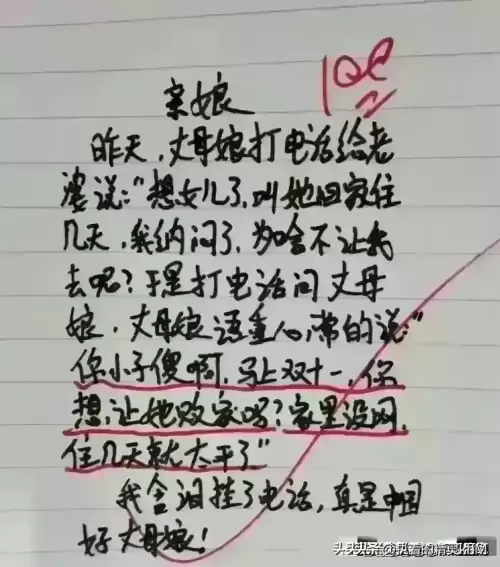 亲娘
100
昨天，丈母娘打电话给老
婆说："想女儿了，叫她回家住
几天，我纳闷了，为啥不让我
去呢？于是打电话问丈母
娘，丈母娘语重心常的说："
你小子傻啊，马上双十一，你
想让她败家吗？家里没网，
住几天就太平了"
我含泪挂了电话，真是中国
好丈母娘！
头条